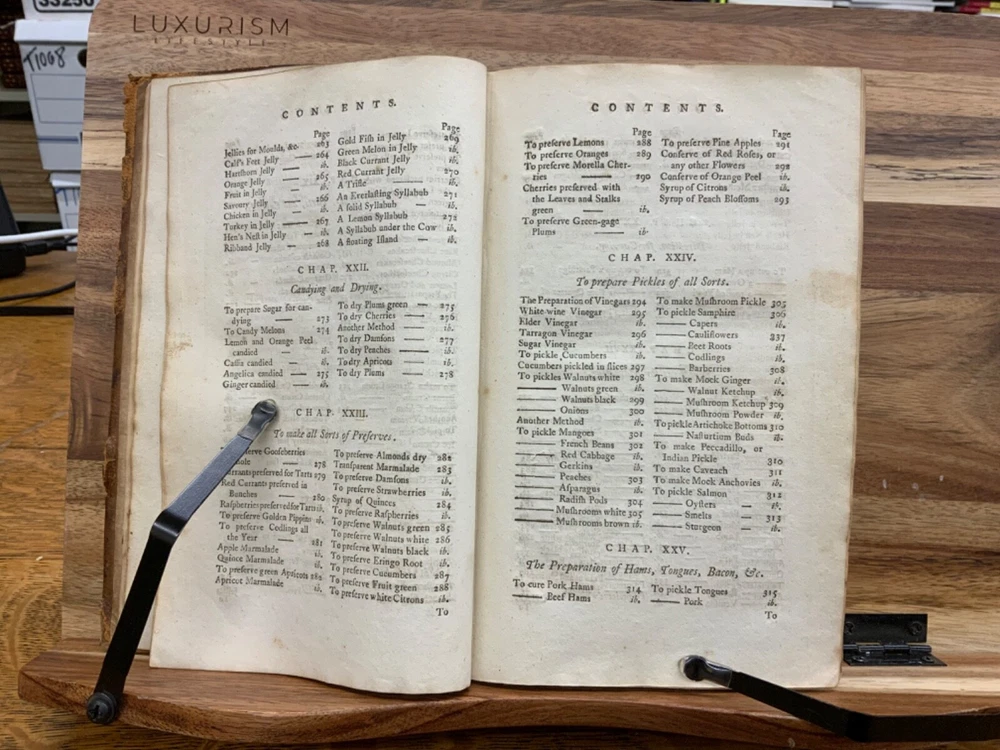 33250
T1068
LUXURISM
LIFESTYLE
CONTENTS.
Page
Jellies for Moulds, &c. 263
Calf's Feet Jelly — 264
Hartſhorn Jelly — ib.
Orange Jelly — 265
Fruit in Jelly — ib.
Savoury Jelly — 266
Chicken in Jelly — ib.
Turkey in Jelly — 267
Hen's Neſt in Jelly — ib.
Ribband Jelly — 268
Page
Gold Fiſh in Jelly 269
Green Melon in Jelly ib.
Black Currant Jelly ib.
Red Currant Jelly 270
A Trifle — ib.
An Everlaſting Syllabub 271
A ſolid Syllabub — ib.
A Lemon Syllabub 272
A Syllabub under the Cow ib.
A floating Iſland — ib.
CHAP. XXII.
Candying and Drying.
To prepare Sugar for can-
dying — 273
To Candy Melons 274
Lemon and Orange Peel
candied — ib.
Caſſia candied — ib.
Angelica candied — 275
Ginger candied — ib.
To dry Plums green — 275
To dry Cherries — 276
Another Method — ib.
To dry Damſons — 277
To dry Peaches — ib.
To dry Apricots — ib.
To dry Plums — 278
CHAP. XXIII.
To make all Sorts of Preſerves.
Gooſeberries
— 278
Currants preſerved for Tarts 279
Red Currants preſerved in
Bunches — 280
Raſpberries preſerved for Tarts ib.
To preſerve Golden Pippins ib.
To preſerve Codlings all
the Year — 281
Apple Marmalade ib.
Quince Marmalade ib.
To preſerve green Apricots 282
Apricot Marmalade ib.
To preſerve Almonds dry 282
Tranſparent Marmalade 283
To preſerve Damſons ib.
To preſerve Strawberries ib.
Syrup of Quinces 284
To preſerve Raſpberries ib.
To preſerve Walnuts green 285
To preſerve Walnuts white 286
To preſerve Walnuts black ib.
To preſerve Eringo Root ib.
To preſerve Cucumbers 287
To preſerve Fruit green 288
To preſerve white Citrons ib.
To
CONTENTS.
Page
To preſerve Lemons 288
To preſerve Oranges 289
To preſerve Morella Cher-
ries — 290
Cherries preſerved with
the Leaves and Stalks
green — ib.
To preſerve Green-gage
Plums — ib.
Page
To preſerve Pine Apples 291
Conſerve of Red Roſes, or
any other Flowers 292
Conſerve of Orange Peel ib.
Syrup of Citrons ib.
Syrup of Peach Bloſſoms 293
CHAP. XXIV.
To prepare Pickles of all Sorts.
The Preparation of Vinegars 294
White-wine Vinegar 295
Elder Vinegar ib.
Tarragon Vinegar 296
Sugar Vinegar ib.
To pickle Cucumbers ib.
Cucumbers pickled in ſlices 297
To pickles Walnuts white 298
—— Walnuts green ib.
—— Walnuts black 299
—— Onions 300
Another Method ib.
To pickle Mangoes 301
—— French Beans 302
—— Red Cabbage ib.
—— Gerkins ib.
—— Peaches 303
—— Aſparagus ib.
—— Radiſh Pods 304
—— Muſhrooms white 305
—— Muſhrooms brown ib.
To make Muſhroom Pickle 305
To pickle Samphire 306
—— Capers ib.
—— Cauliflowers 337
—— Beet Roots ib.
—— Codlings ib.
—— Barberries 308
To make Mock Ginger ib.
—— Walnut Ketchup ib.
—— Muſhroom Ketchup 309
—— Muſhroom Powder ib.
To pickle Artichoke Bottoms 310
—— Naſturtium Buds ib.
To make Peccadillo, or
Indian Pickle 310
To make Caveach 311
To make Mock Anchovies ib.
To pickle Salmon 312
—— Oyſters — ib.
—— Smelts — 313
—— Sturgeon — ib.
CHAP. XXV.
The Preparation of Hams, Tongues, Bacon, &c.
To cure Pork Hams 314
—— Beef Hams ib.
To pickle Tongues 315
—— Pork ib.
To